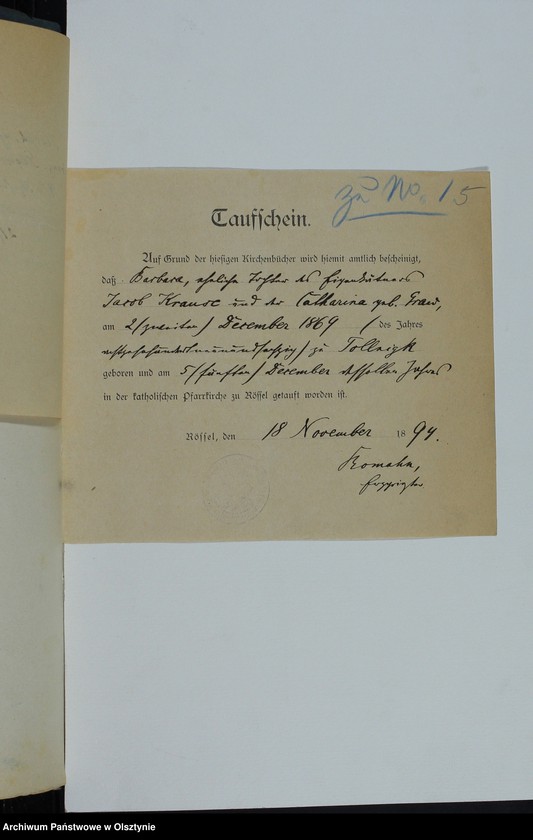 zu No. 15
Taufschein.
Auf Grund der hiesigen Kirchenbücher wird hiemit amtlich bescheinigt,
daß Barbara, eheliche Tochter des Eigenkäthners
Jacob Krause und der Catharina geb. Graw,
am 2/zweiten/ December 1869 / des Jahres
achtzehnhundertneunundsechzig/ zu Tollnigk
geboren und am 5/fünften/ December desselben Jahres
in der katholischen Pfarrkirche zu Rößel getauft worden ist.
Rößel, den 18 November 1894.
Romahn,
Erzpriester
Archiwum Państwowe w Olsztynie